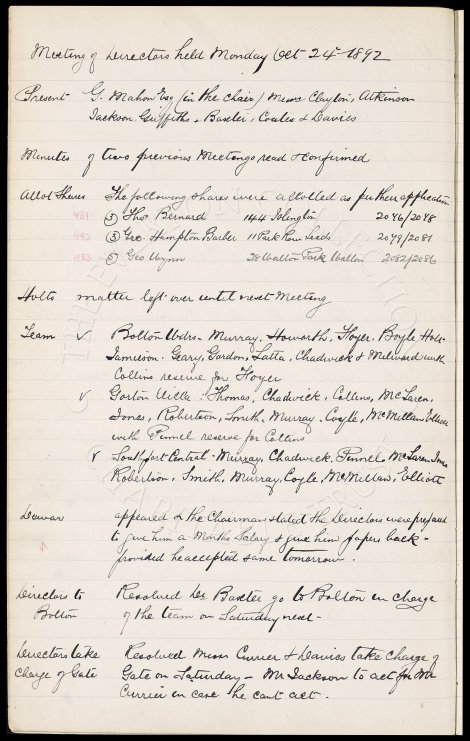 Meeting of Directors held Monday Oct 24th 1892
Present G. Mahon Esq (in the chair) Messrs Clayton, Atkinson
Jackson Griffiths, Baxter, Coates & Davies
Minutes of two previous Meetings read & confirmed
Allot Shares The following shares were allotted as per their application
481 (3) Thos Bernard 144 Islington 2076/2078
482 (3) Geo Hampton Barber 11 Park Row Leeds 2079/2081
483 (5) Geo Wynn 28 Walton Park Walton 2082/2086
Holts matter left over until next Meeting
Team ✓ Bolton Wdrs - Murray, Howarth, Boyle Holt
Jameison. Geary, Gordon, Latta, Chadwick & Milward with
Collins reserve for
✓ Gorton Villa: Thomas, Chadwick, Collins, McLaren,
Jones, Robertson, Smith, Murray, Coyle, McMillan Elliott
with Pinnell reserve for Collins
✓ Southport Central - Murray, Chadwick, Pinnell, McLaren Jones
Robertson, Smith, Murray, Coyle, McMillan, Elliott
Dewar appeared & the Chairman stated the Directors were prepared
to give him a Months Salary & give him papers back -
provided he accepted same tomorrow.
Directors to Resolved Dr Baxter go to Bolton in charge
Bolton of the team on Saturday next -
Directors take Resolved Messrs Currier & Davies take charge of
Charge of Gate Gate on Saturday - Mr Jackson to act for Mr
Currier in case he cant act.